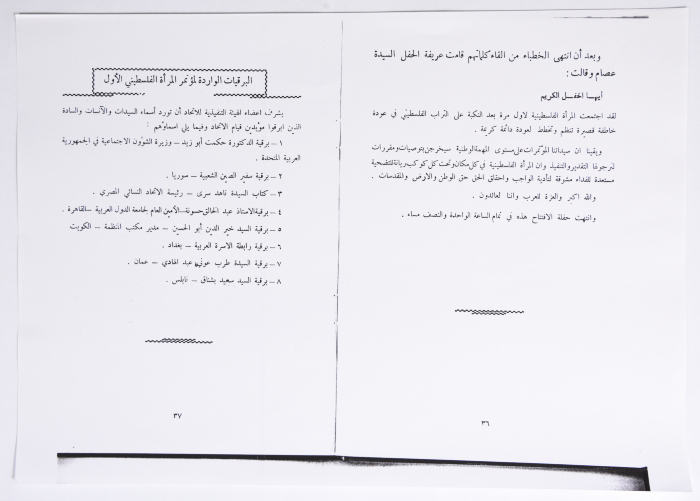 وبعد أن انتهى الخطباء من القاء كلماتهم قامت عريفة الحفل السيدة
عصام وقالت :
أيهـا الحفـل الكريم
لقد اجتمعت المرأة الفلسطينية لاول مرة بعد النكبة على التراب الفلسطيني في عودة
خاطفة قصيرة تنظم وتخطط لعودة دائمة كريمة .
ويقينا ان سيداتنا المؤتمرات على مستوى المهمة الوطنية سيخرجن بتوصيات ومقررات
لها التقدير والتنفيذ وان المرأة الفلسطينية في كل مكان وتحت كل كوكب ربانة للتضحية
مستعدة للفداء مشوقة لتأدية الواجب واحقاق الحق حق الوطن والارض والمقدسات .
والله اكبر والعزة للعرب واننا لعائدون .
وانتهت حفلة الافتتاح هذه في تمام الساعة الواحدة والنصف مساء .
٣٦
البرقيات الواردة لمؤتمر المرأة الفلسطيني الأول
يشرف اعضاء الهيئة التنفيذية للاتحاد أن تورد أسماء السيدات والآنسات والسادة
الذين ابرقوا مؤيدين قيام الاتحاد وفيما يلي اسماؤهم :
١ – برقية الدكتورة حكمت أبو زيد – وزيرة الشؤون الاجتماعية في الجمهورية
العربية المتحدة .
٢ – برقية سفير الصين الشعبية – سوريا .
٣ – كتاب السيدة ناهد سرى – رئيسة الاتحاد النسائي المصري .
٤ – برقية الاستاذ عبد الخالق حسونة – الأمين العام لجامعة الدول العربية – القاهرة .
٥ – برقية السيد خير الدين أبو الحسين – مدير مكتب المنظمة – الكويت
٦ – برقية رابطة الاسرة العربية – بغداد .
٧ – برقية السيدة طرب عوني عبد الهادي – عمان .
٨ – برقية السيد سعيد بشناق – نابلس .
٣٧